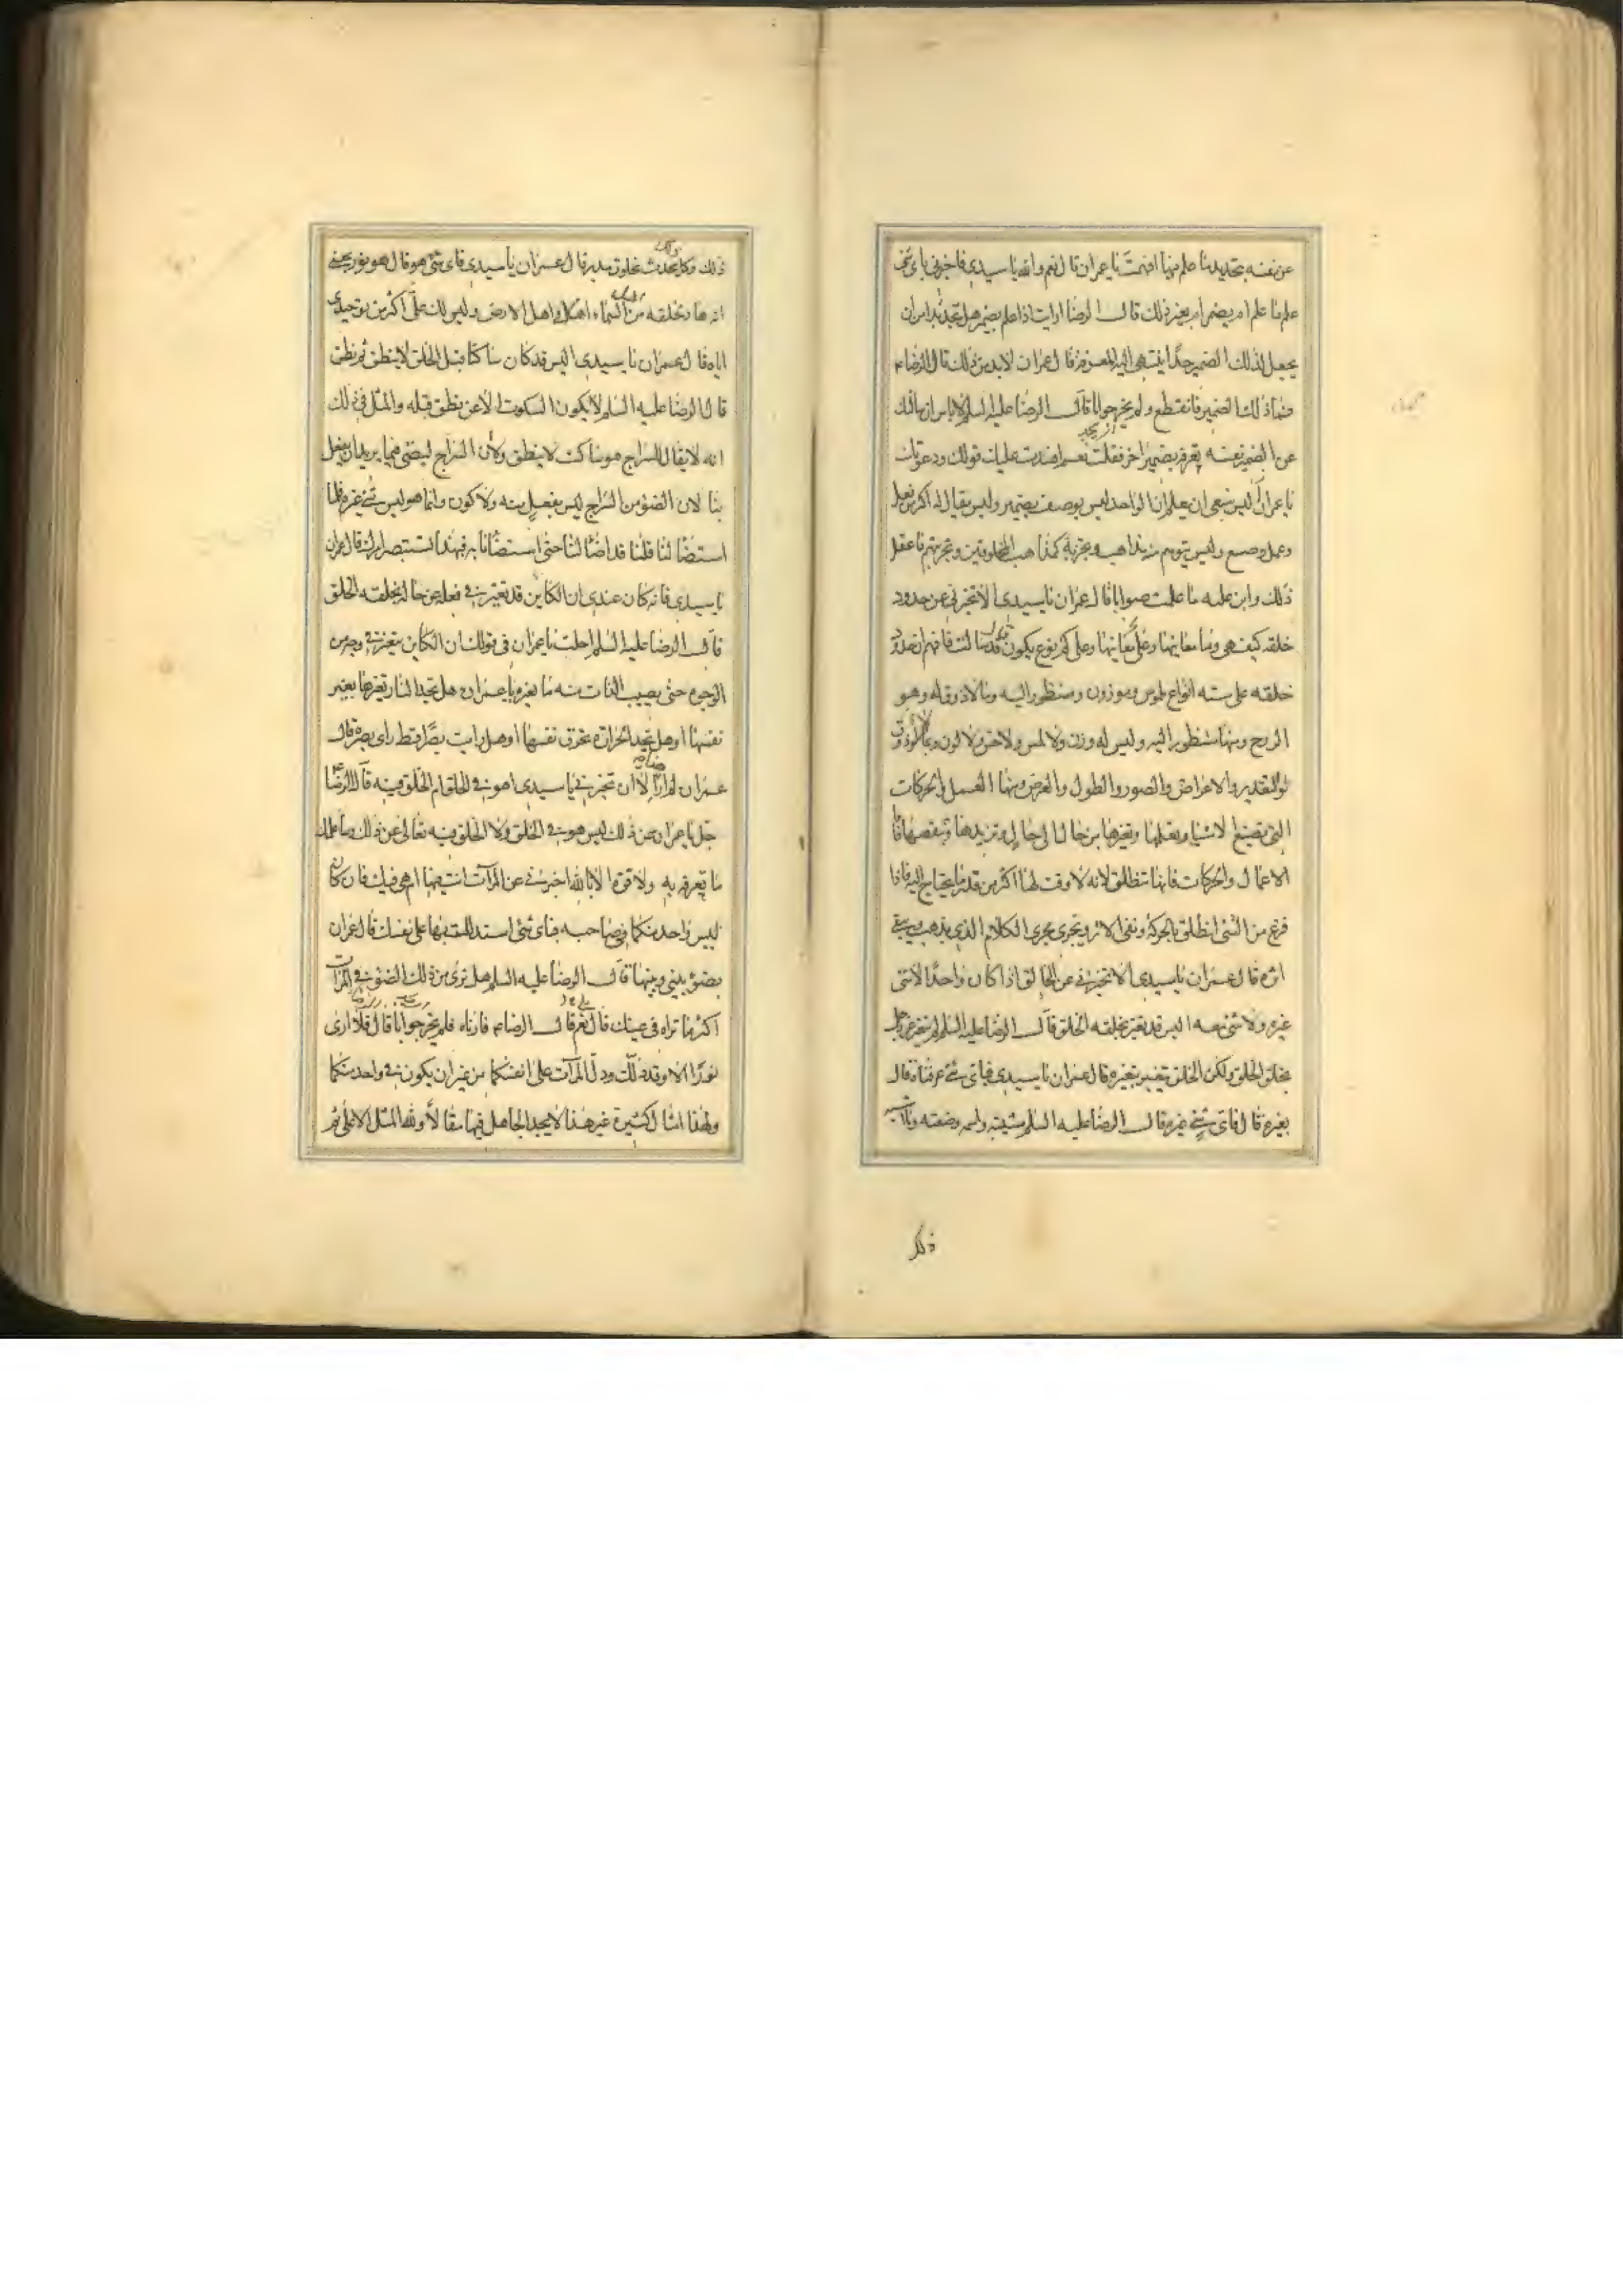 عن نفسه بتحديد ما علم منها افهمت يا عمران قال نعم والله يا سيدي فاخبرني باى شى
علم ما علم امر بضمير ام بغير ذلك قال الرضا ارايت اذا علم بضمير هل تجد بدا من ان
يجعل لذلك الضمير حدا ينتهى اليه المعرفة قال عمران لابد من ذلك قال الرضا ع
فما ذلك الضمير فانقطع ولم يحر جوابا قال الرضا عليه السلم لا باس ان سالتك
عن الضمير نفسه تعرفه بضمير اخر فقلت نعم افسدت عليك قولك ودعوتك
يا عمران اليس ينبغى ان يعلم ان الواحد ليس يوصف بضمير وليس يقال له اكثر من فعل
وعمل وصنع وليس يتوهم منه مذاهب وتجزية كمذاهب المخلوقين وتجزيتهم فاعقل
ذلك وابن عليه ما علمت صوابا قال عمران يا سيدى الا تخبرنى عن حدود
خلقه كيف هى وما معانيها وعلى كم نوع يكون قال قد سالت فافهم ان حدود
خلقه على ستة انواع ملموس وموزون ومنظور اليه وما لا ذوق له وهو
الروح ومنها منظور اليه وليس له وزن ولا لمس ولا حس ولا لون ولا ذوق
والتقدير والاعراض والصور والطول والعرض ومنها العمل والحركات
التى تصنع الاشيا وتعملها وتغيرها من حال الى حال وتزيدها وتنقصها فاما
الاعمال والحركات فانها تنطلق لانه لا وقت لها اكثر من قدر ما يحتاج اليه فاذا
فرغ من الشى انطلق بالحركة وبقى الاثر ويجرى مجرى الكلام الذى يذهب ويبقى
اثره قال عمران يا سيدى الا تخبرنى عن الخالق اذا كان واحدا لا شى
غيره ولا شى معه اليس قد تغير بخلقه الخلق قال الرضا عليه السلم لم يتغير عز وجل
بخلق الخلق ولكن الخلق يتغير بتغيره قال عمران يا سيدى فباى شى عرفناه قال
بغيره قال فاى شى غيره قال الرضا عليه السلم مشيته واسمه وصفته وما اشبه
ذلك
ذلك وكل ذلك محدث مخلوق مدبر قال عمران يا سيدى فاى شى هو قال هو نور بمعنى
انه هاد لخلقه من اهل السماء واهل الارض وليس لك على اكثر من توحيدى
اياه قال عمران يا سيدى اليس قد كان ساكتا قبل الخلق لا ينطق ثم نطق
قال الرضا عليه السلم لا يكون السكوت الا عن نطق قبله والمثل فى ذلك
انه لا يقال للسراج هو ساكت لا ينطق ولا ان السراج ليضئ فيما يريد ان يفعل
بنا لان الضوء من السراج ليس بفعل منه ولا كون وانما هو ليس شى غيره فلما
استضا لنا قلنا قد اضا لنا حتى استضانا به فبهذا تستبصر امرك قال عمران
يا سيدى فانه كان عندى ان الكاين قد تغير فى فعله عن حاله بخلقه الخلق
قال الرضا عليه السلم احلت يا عمران فى قولك ان الكاين يتغير فى وجه من
الوجوه حتى يصيب الذات منه ما يغيره يا عمران هل تجد النار تغيرها بغير
نفسها او هل تجد الحرارة تحرق نفسها او هل رايت بصرا قط راى بصره قال
عمران لم ار هذا الا ان تخبرنى يا سيدى اهو فى الخلق ام الخلق فيه قال الرضا
جل يا عمران عن ذلك ليس هو فى الخلق ولا الخلق فيه تعالى عن ذلك وساعلمك
ما تعرفه به ولا قوة الا بالله اخبرنى عن المرآت انت فيها ام هى فيك فان كان
ليس واحد منكما فى صاحبه فباى شى استدللت بها على نفسك قال عمران
بضوء بينى وبينها قال الرضا عليه السلم هل ترى من ذلك الضوء فى المرآت
اكثر ما تراه فى عينك قال نعم قال الرضا ع فارناه فلم يحر جوابا قال فلا ارى
النور الا وقد دلك ودل المرآت على انفسكما من غير ان يكون فى واحد منكما
ولهذا امثال كثيرة غير هذا لا يجد الجاهل فيها مقالا ولله المثل الاعلى ثم